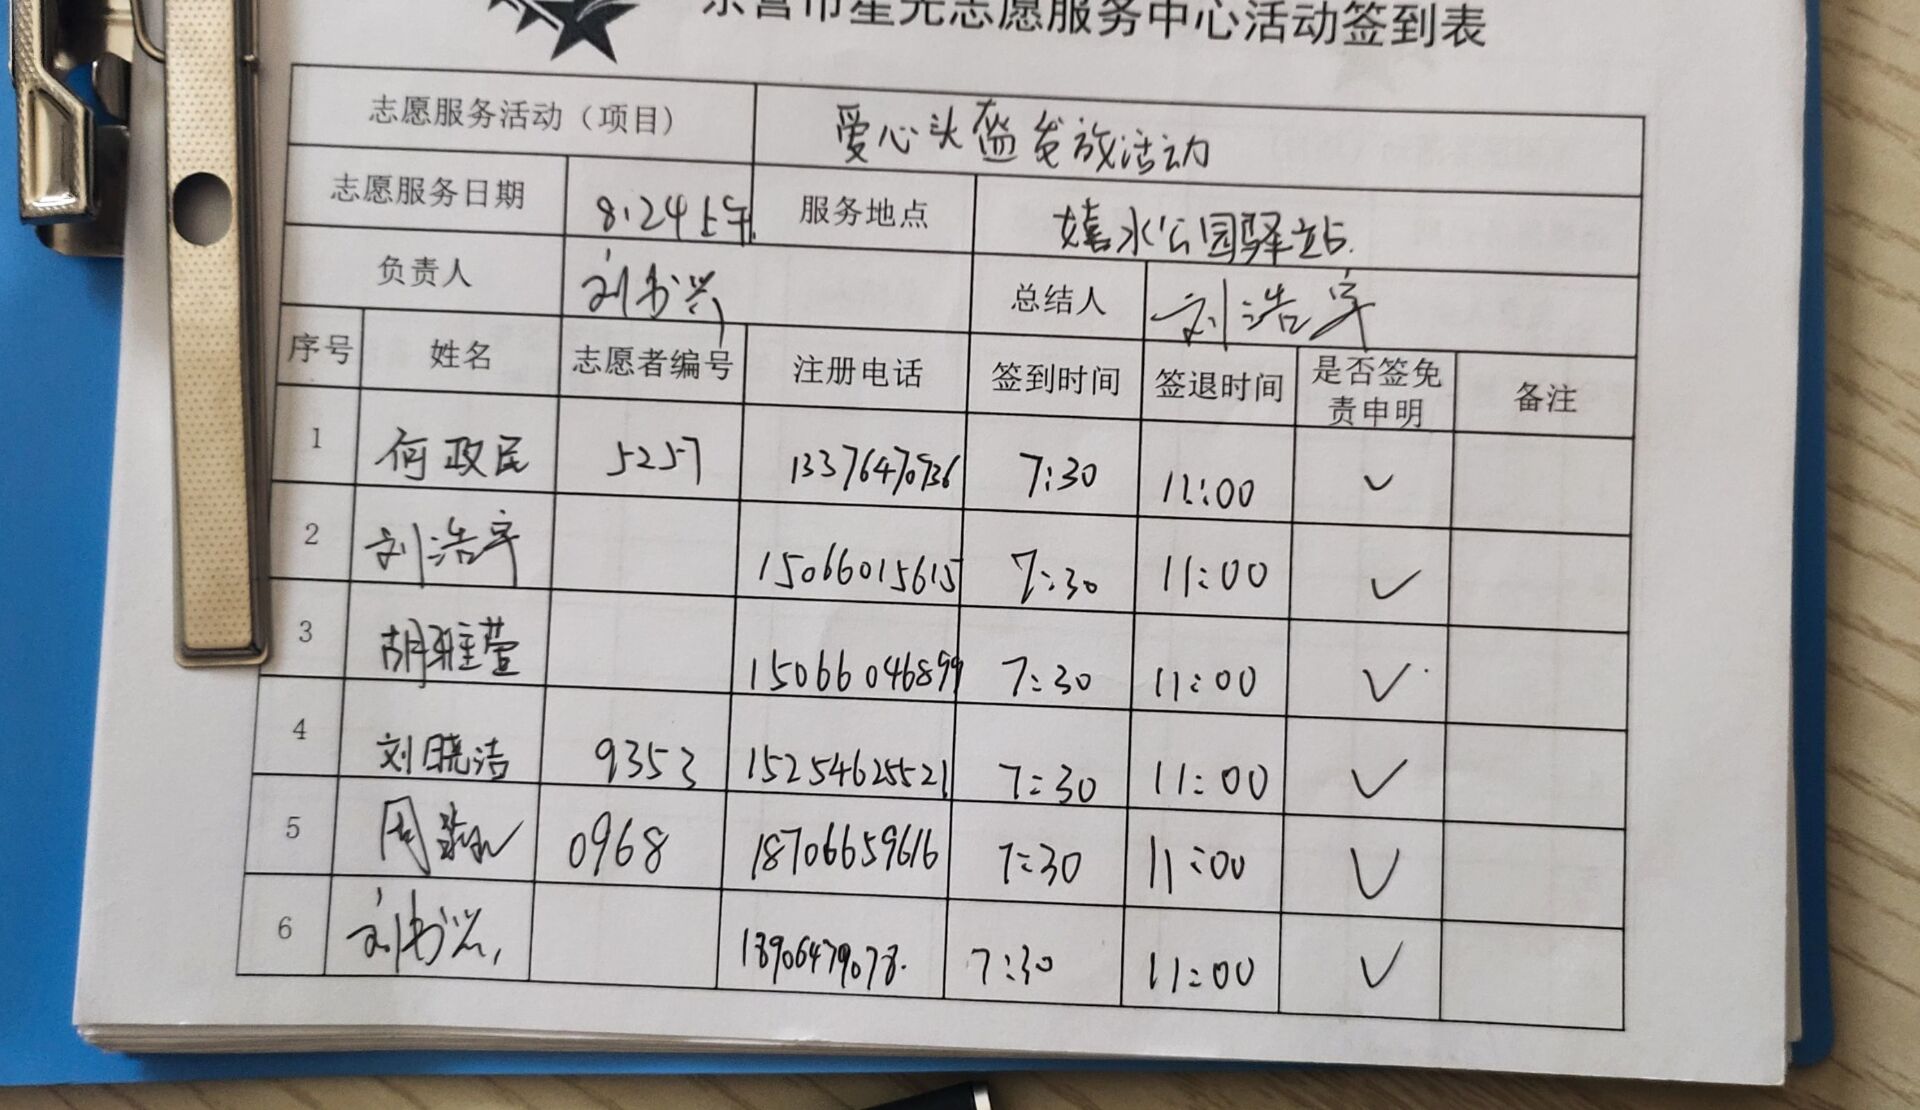 东营市星光志愿服务中心活动签到表
志愿服务活动（项目） 爱心头盔发放活动
志愿服务日期 8.24上午 服务地点 嬉水公园驿站.
负责人 刘书兴 总结人 刘浩宇
序号 姓名 志愿者编号 注册电话 签到时间 签退时间 是否签免责申明 备注
1 何政民 5257 13376470936 7:30 11:00 ✓
2 刘浩宇 15066015615 7:30 11:00 ✓
3 胡雅萱 15066046899 7:30 11:00 ✓
4 刘晓洁 9353 15254625521 7:30 11:00 ✓
5 周 0968 18706659616 7:30 11:00 ✓
6 刘书兴 7:30 11:00 ✓